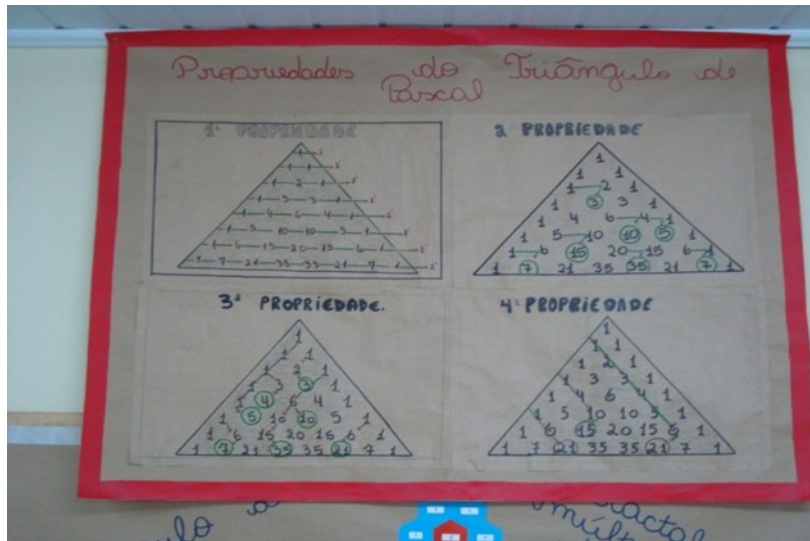 Propriedades do Triângulo de
Pascal
1ª PROPRIEDADE
1
1 1
1 2 1
1 3 3 1
1 4 6 4 1
1 5 10 10 5 1
1 6 15 20 15 6 1
1 7 21 35 35 21 7 1
2 PROPRIEDADE
1
1 1
1 2 1
1 3 3 1
1 4 6 4 1
1 5 10 10 5 1
1 6 15 20 15 6 1
1 7 21 35 35 21 7 1
3ª PROPRIEDADE.
1
1 1
1 2 1
1 3 3 1
1 4 6 4 1
1 5 10 10 5 1
1 6 15 20 15 6 1
1 7 21 35 35 21 7 1
4ª PROPRIEDADE
1
1 1
1 2 1
1 3 3 1
1 4 6 4 1
1 5 10 10 5 1
1 6 15 20 15 6 1
1 7 21 35 35 21 7 1